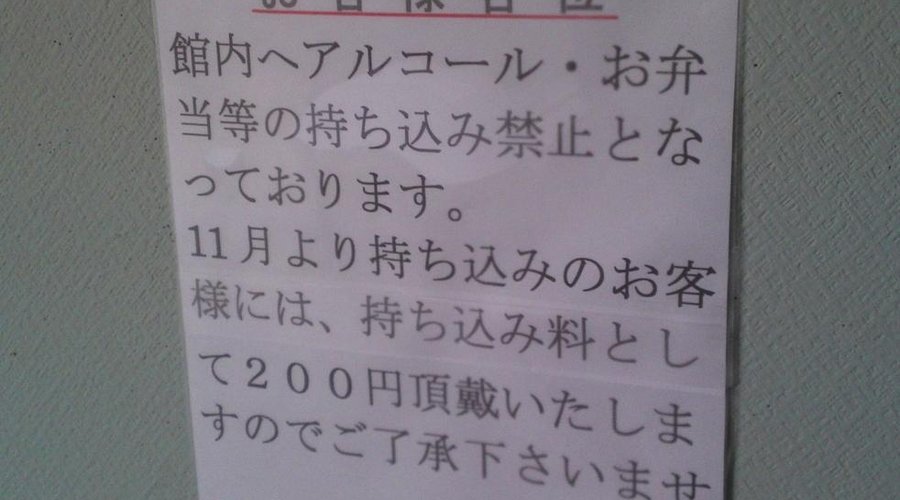 お客様各位
館内へアルコール・お弁
当等の持ち込み禁止とな
っております。
11月より持ち込みのお客
様には、持ち込み料とし
て２００円頂戴いたしま
すのでご了承下さいませ